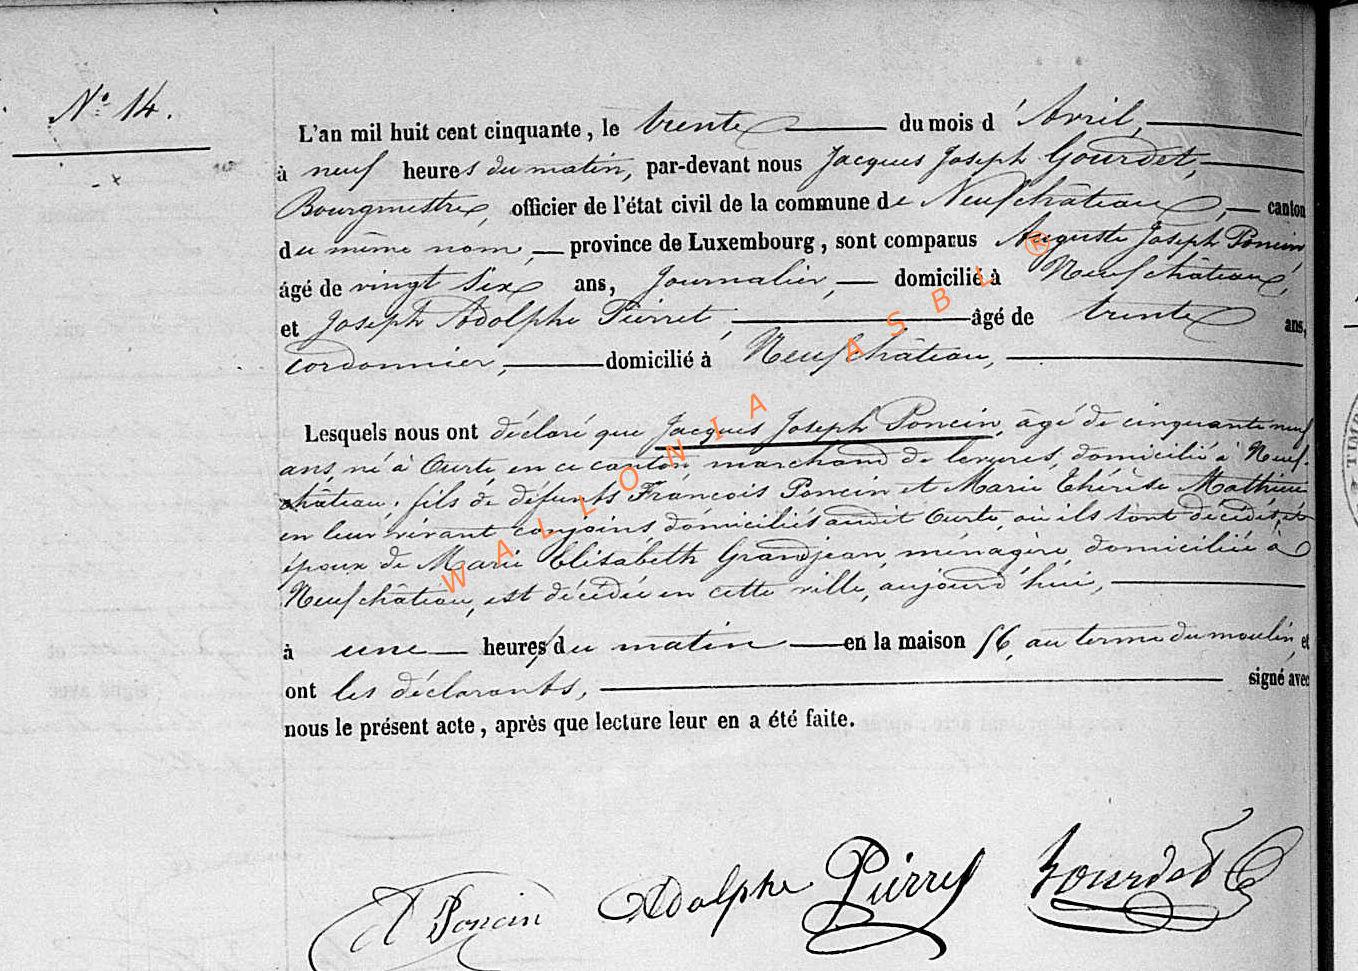 N° 14.
L'an mil huit cent cinquante, le trente du mois d'Avril,
à neuf heures du matin, par-devant nous Jacques Joseph Gourdet,
Bourgmestre, officier de l'état civil de la commune de Neufchâteau, canton
du même nom, province de Luxembourg, sont comparus Auguste Joseph Poncin,
âgé de vingt six ans, Journalier, domicilié à Neufchâteau,
et Joseph Adolphe Pierret, âgé de trente ans,
cordonnier, domicilié à Neufchâteau,
Lesquels nous ont déclaré que Jacques Joseph Poncin, âgé de cinquante neuf
ans, né à Ourte en ce canton marchand de levures, domicilié à Neuf-
château, fils de défunts François Poncin et Marie Thérèse Mathieu
en leur vivant conjoins, domiciliés audit Ourte, où ils sont décédés, et
époux de Marie Elisabeth Grandjean, ménagère domiciliée à
Neufchâteau, est décédé en cette ville, aujourd'hui,
à une heures du matin en la maison 56, au terme du moulin, et
ont les déclarants, signé avec
nous le présent acte, après que lecture leur en a été faite.
A Poncin Adolphe Pierret Gourdet
WALLONIA ASBL ®
TIMB